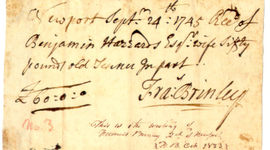 Newport Sept. 24th. 1745 Recd of
Benjamin Hazzards Esqrs wife Sixty
pounds old Tenner In part
£60:0:0 Fras Brinley
No. 3
This is the writing of
Francis Brinley of Newport